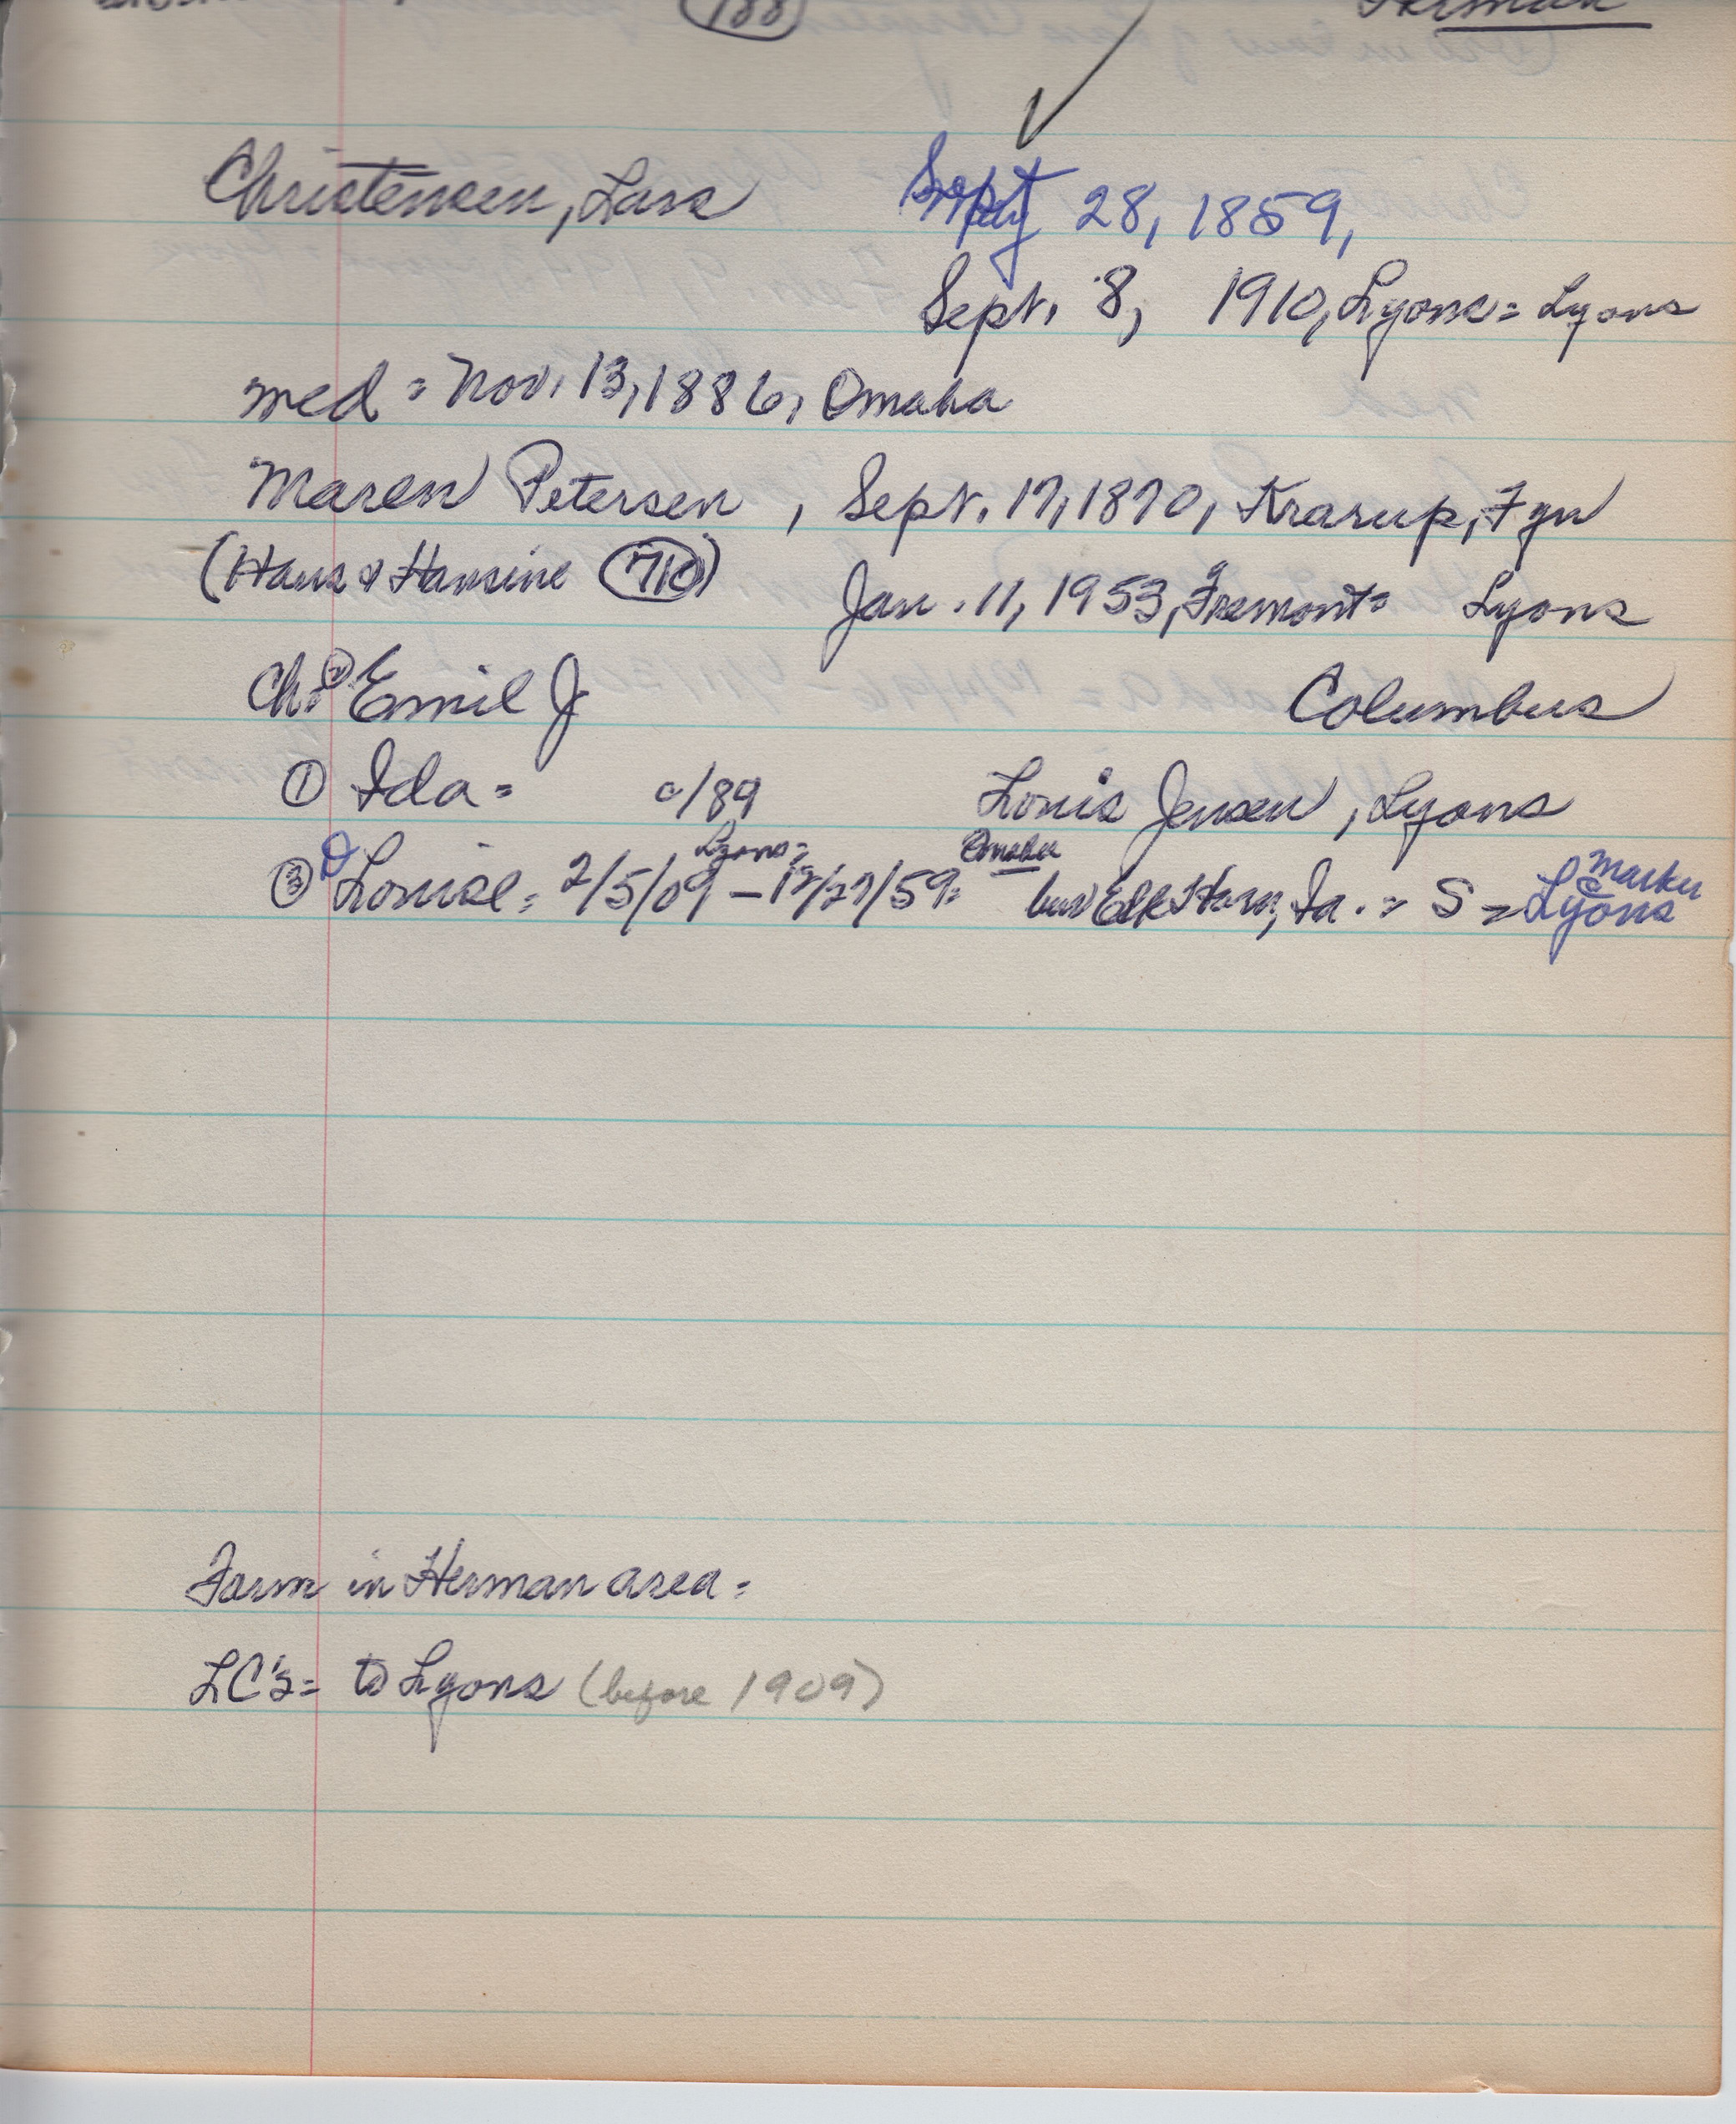 188 Herman
Christensen, Lars Sept 28, 1859,
Sept. 8, 1910, Lyons = Lyons
med = Nov. 13, 1886, Omaha
Maren Petersen , Sept. 17, 1870, Krarup, Fyn
(Hans & Hansine 710) Jan. 11, 1953, Fremont = Lyons
Ch: ② Emil J Columbus
① Ida = c/89 Louis Jensen, Lyons
Lyons = Omaha marker
③ D Louise = 2/5/09 - 12/27/59 = bur Elk Horn, Ia. = S = Lyons
Farm in Herman area =
LC's = to Lyons (before 1909)